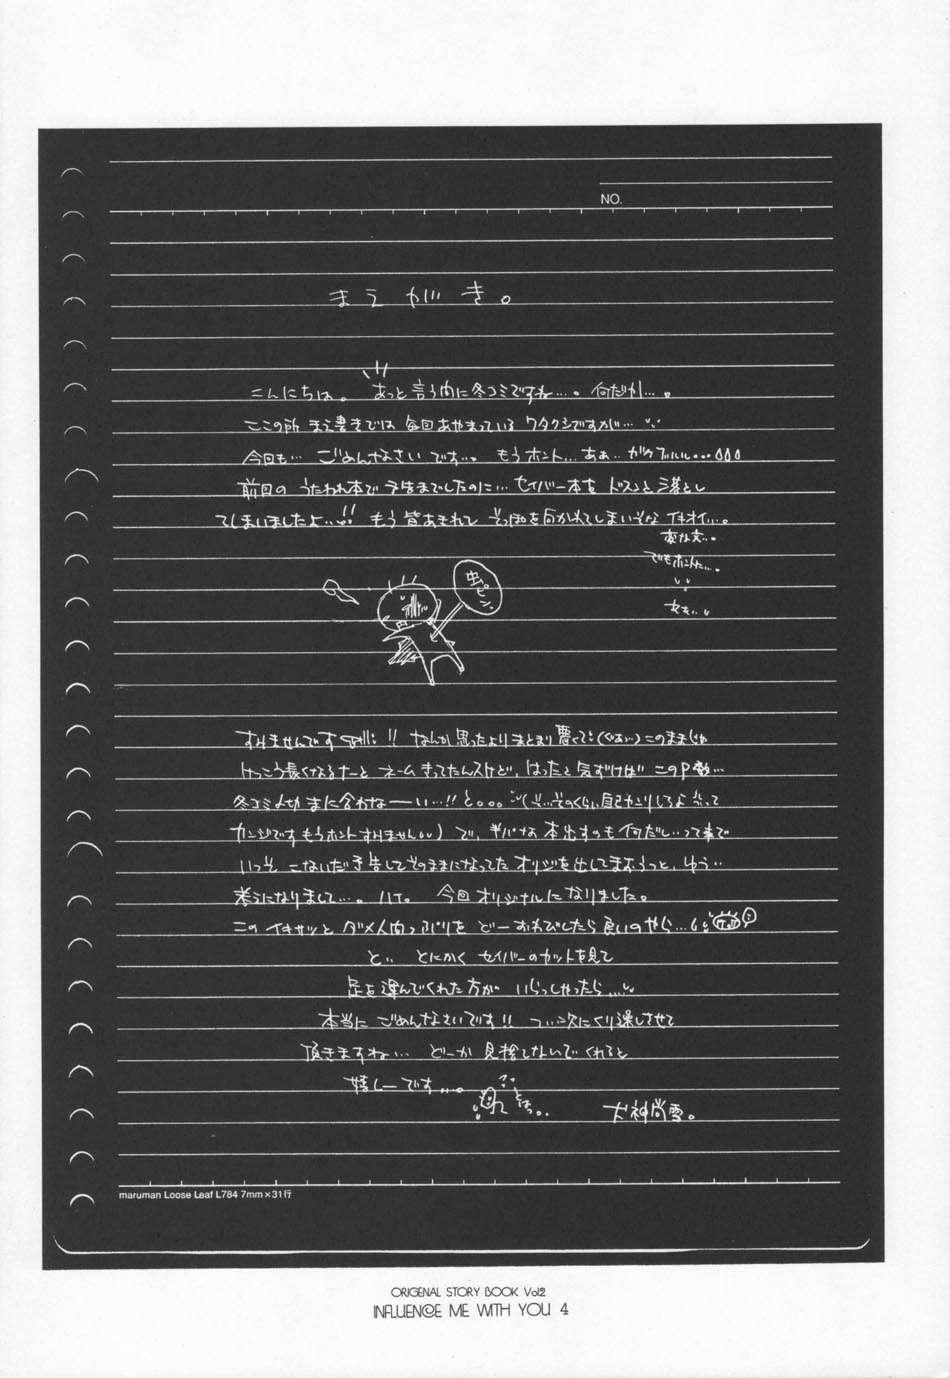 NO.
まえがき。
こんにちは。あっと言う内に冬コミですね…。何だか…。
ここの所 まえ書きでは 毎回あやまっている ワタクシですが…
今回も… ごめんなさい です…。 もうホント… あぁ… ガクブルル…
前回の うたわれ本で 予告までしたのに… セイバー本を ドスンと落とし
てしまいましたよ…!! もう皆あきれて そっぽを向かれてしまいそな イキオイ…。
変な文…。
でもホント…。
虫ピン。
すみませんです !! なんか思ったよりまとまり悪くて このままじゃ
けっこう長くなるなーと ネームきってたんスけど、はったと気ずけば このP数…
冬コミ〆切 まに合わなーい…!! と。。。 そのくらい自己カンリしろよ って
カンジです もうホントすみません で、半パな 本出すのも何だし…って事で
いっそ こないだ予告してそのままになってた オリジを出してまおうっと、ゆう
考えになりまして…。ハイ。 今回オリジナルになりました。
このイキサツと ダメ人間っぷりを どーおわびしたら良いのやら…
と とにかく セイバーのカットを見て
足を運んでくれた方が いらっしゃったら…
本当に ごめんなさいです!! つい次にくり遅しさせて
頂きますね… どーか 見捨てないでくれると
嬉しーです…。
犬神尚雪。
maruman Loose Leaf L784 7mm×31行
ORIGENAL STORY BOOK Vol2
INFLUENCE ME WITH YOU 4